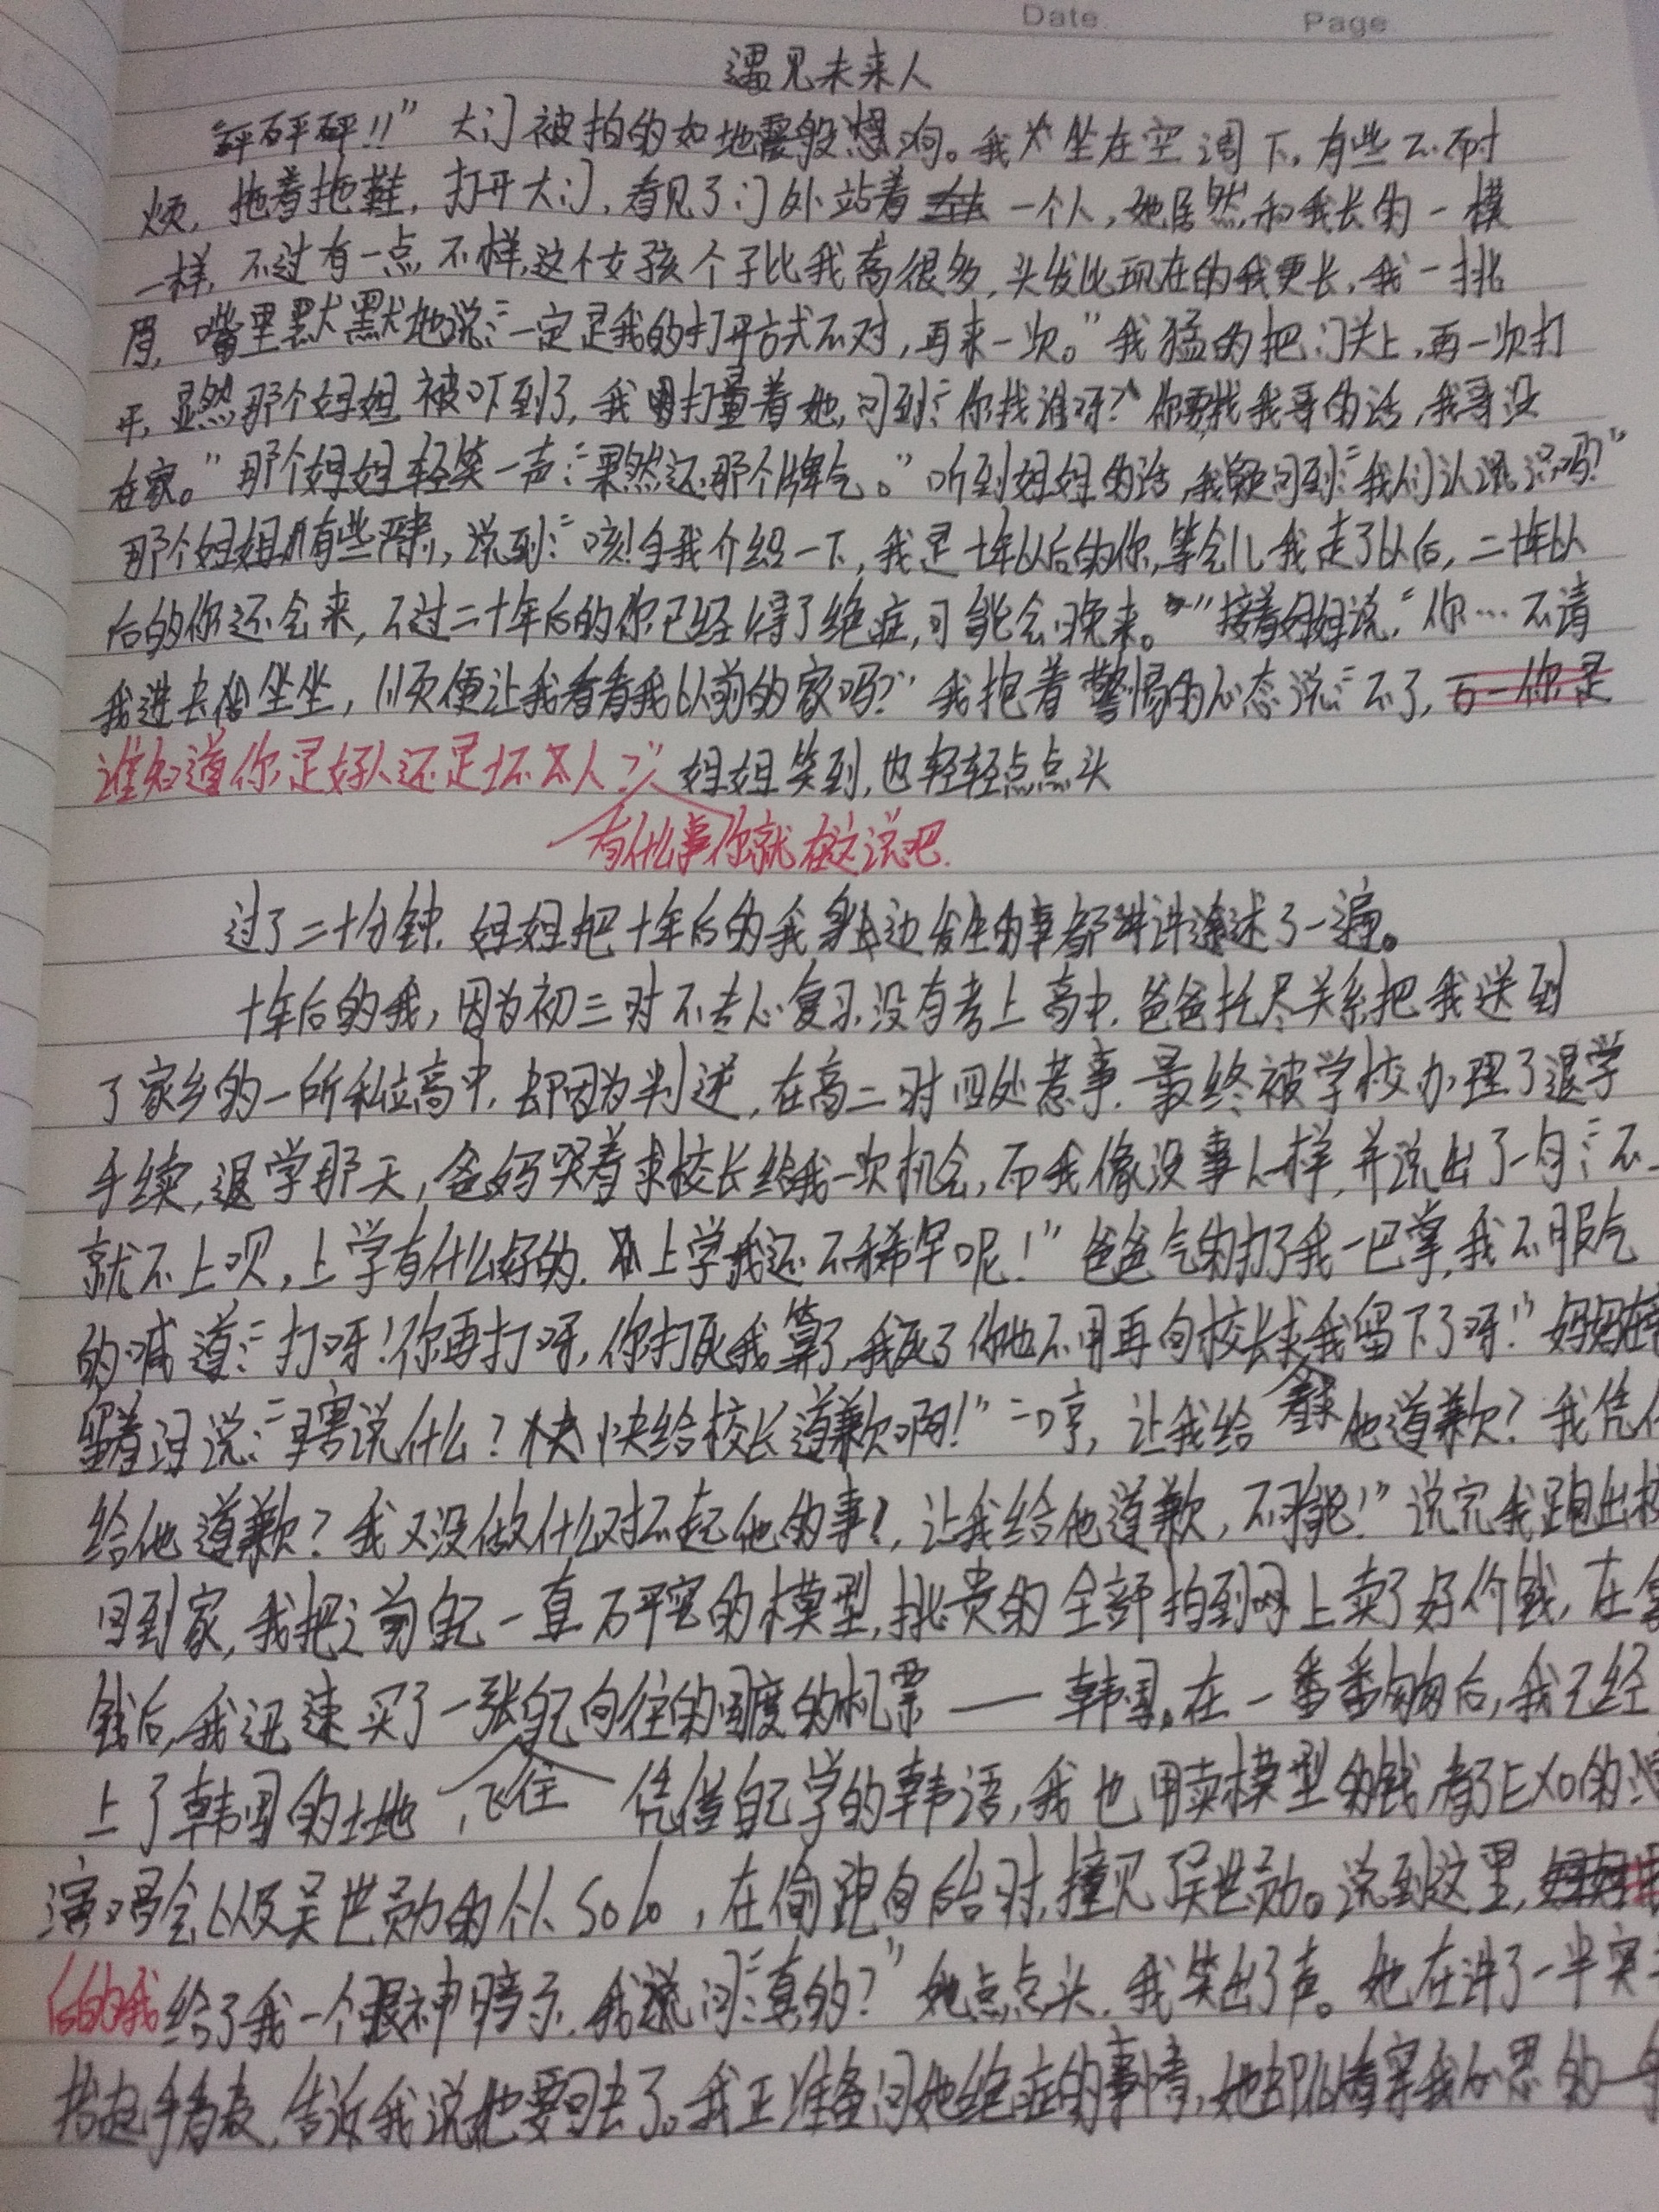 Date. Page
遇见未来人
"砰砰砰!!" 大门被拍的如地震般响。我坐在空调下,有些不耐
烦,拖着拖鞋,打开大门,看见了门外站着一个人,她居然和我长的一模
一样,不过有一点不样,这个女孩个子比我高很多,头发比现在的我更长,我一挑
眉,嘴里默默地说:"一定是我的打开方式不对,再来一次。"我猛的把门关上,再一次打
开,显然那个姐姐被吓到了,我打量着她,问到:"你找谁呀?你要找我哥的话,我哥没
在家。"那个姐姐轻笑一声:"果然还那个脾气。"听到姐姐的话,我疑问到:"我们认识吗?"
那个姐姐有些严肃,说到:"咳!自我介绍一下,我是十年以后的你,等会儿我走了以后,二十年以
后的你还会来,不过二十年后的你已经得了绝症,可能会晚来。"接着姐姐说,"你…不请
我进去坐坐,顺便让我看看我以前的家吗?"我抱着警惕的心态说:"不了,万一你是
谁知道你是好人还是坏人?" 姐姐笑到,也轻轻点点头
有什么事你就在这说吧.
过了二十分钟,姐姐把十年后的我身边发生的事都讲述了一遍。
十年后的我,因为初三时不专心复习,没有考上高中,爸爸托尽关系把我送到
了家乡的一所私立高中,却因为判逆,在高二时四处惹事,最终被学校办理了退学
手续,退学那天,爸妈哭着求校长给我一次机会,而我像没事人一样,并说出了一句:"不
就不上呗,上学有什么好的,上学我还不稀罕呢!"爸爸气的打了我一巴掌,我不服气
的喊道:"打呀!你再打呀,你打死我算了,我死了你也不用再向校长求我留下了呀!"妈妈
着泪说:"瞎说什么?快快给校长道歉啊!""哼,让我给他道歉?我凭
给他道歉?我又没做什么对不起他的事!,让我给他道歉,不可能!"说完我跑出
回到家,我把之前自己一直研究的模型,挑贵的全部拍到网上卖了好价钱,在
钱后,我迅速买了一张自己向往的国度的机票——韩国。在一番番匆匆后,我已经
上了韩国的土地 飞往 凭借自己学的韩语,我也用卖模型的钱,看了EXO的
演唱会以及吴世勋的个人Solo,在偷跑向后台时,撞见了吴世勋。说到这里,
后的我给了我一个眼神暗示,我问:"真的?"她点点头,我笑出了声。她在讲了一半突
抬起手看表,告诉我说她要回去了。我正准备问她绝症的事情,她却似看穿我心思的一